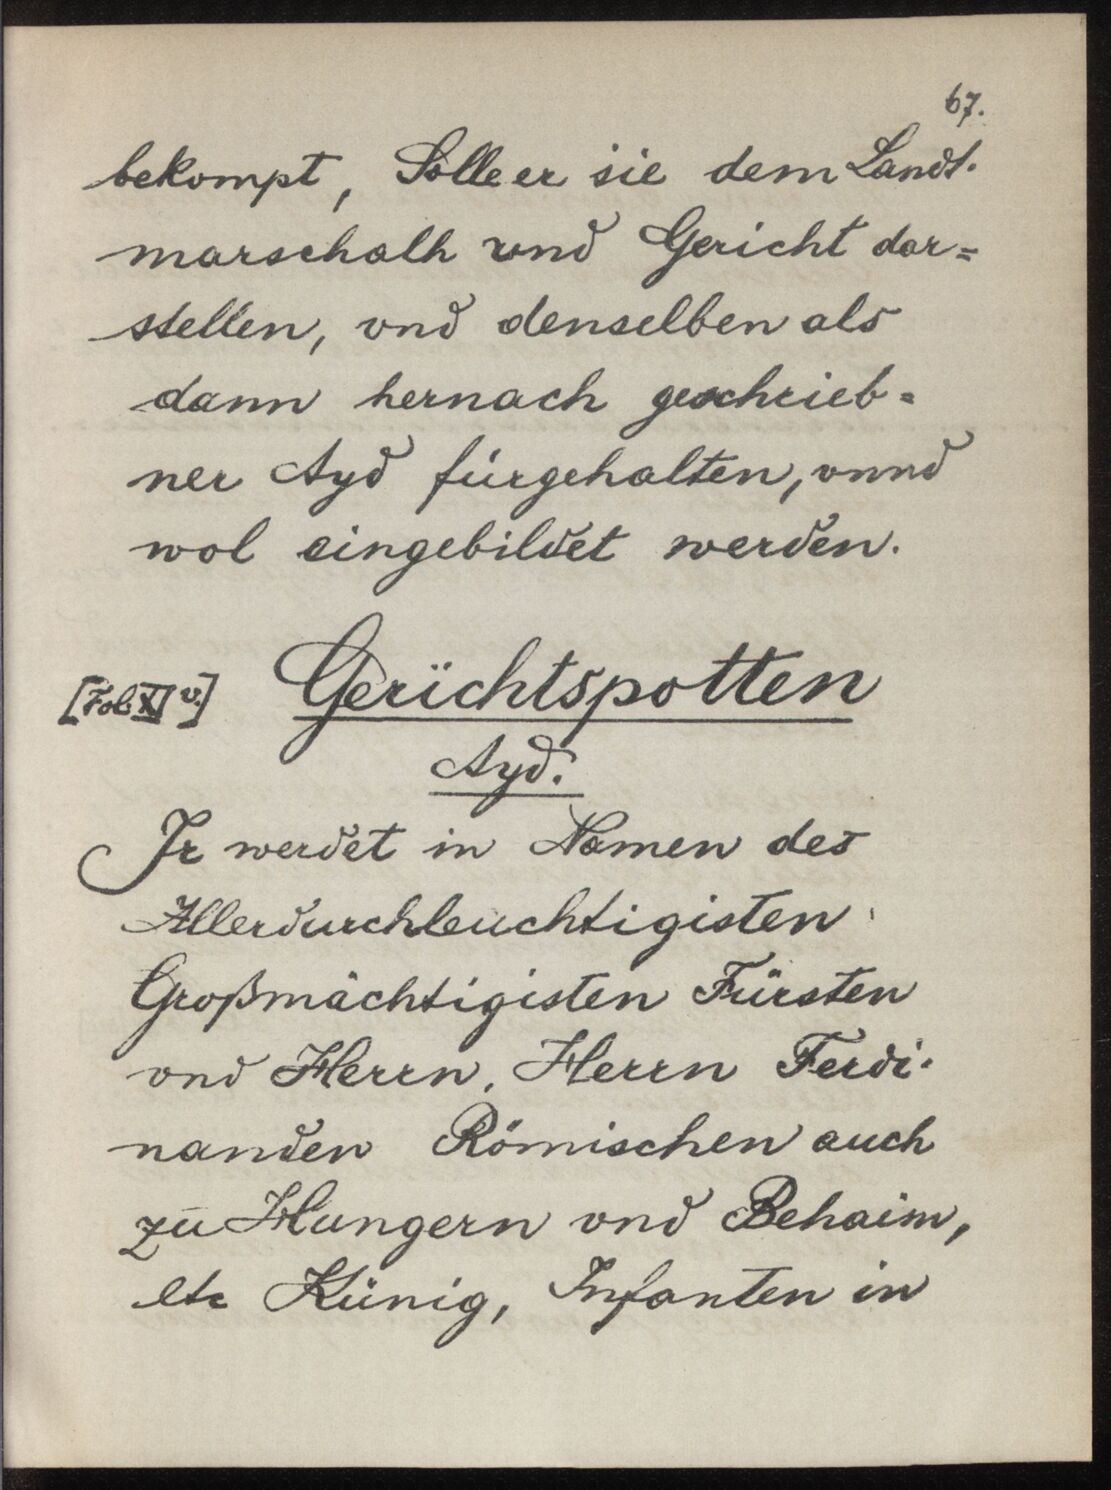 67.
bekompt, Solle er sie dem Landt-
marschalh vnd Gericht dar=
stellen, vnd denselben als
dann hernach geschrieb-
ner Ayd fürgehalten, vnnd
wol eingebildet werden.
[Fol. XI v.] Gerichtspotten
Ayd.
Jr werdet in Namen des
Allerdurchleuchtigisten
Großmächtigisten Fürsten
vnd Herrn, Herrn Ferdi-
nanden Römischen auch
zu Hungern vnd Behaim,
etc Künig, Infanten in